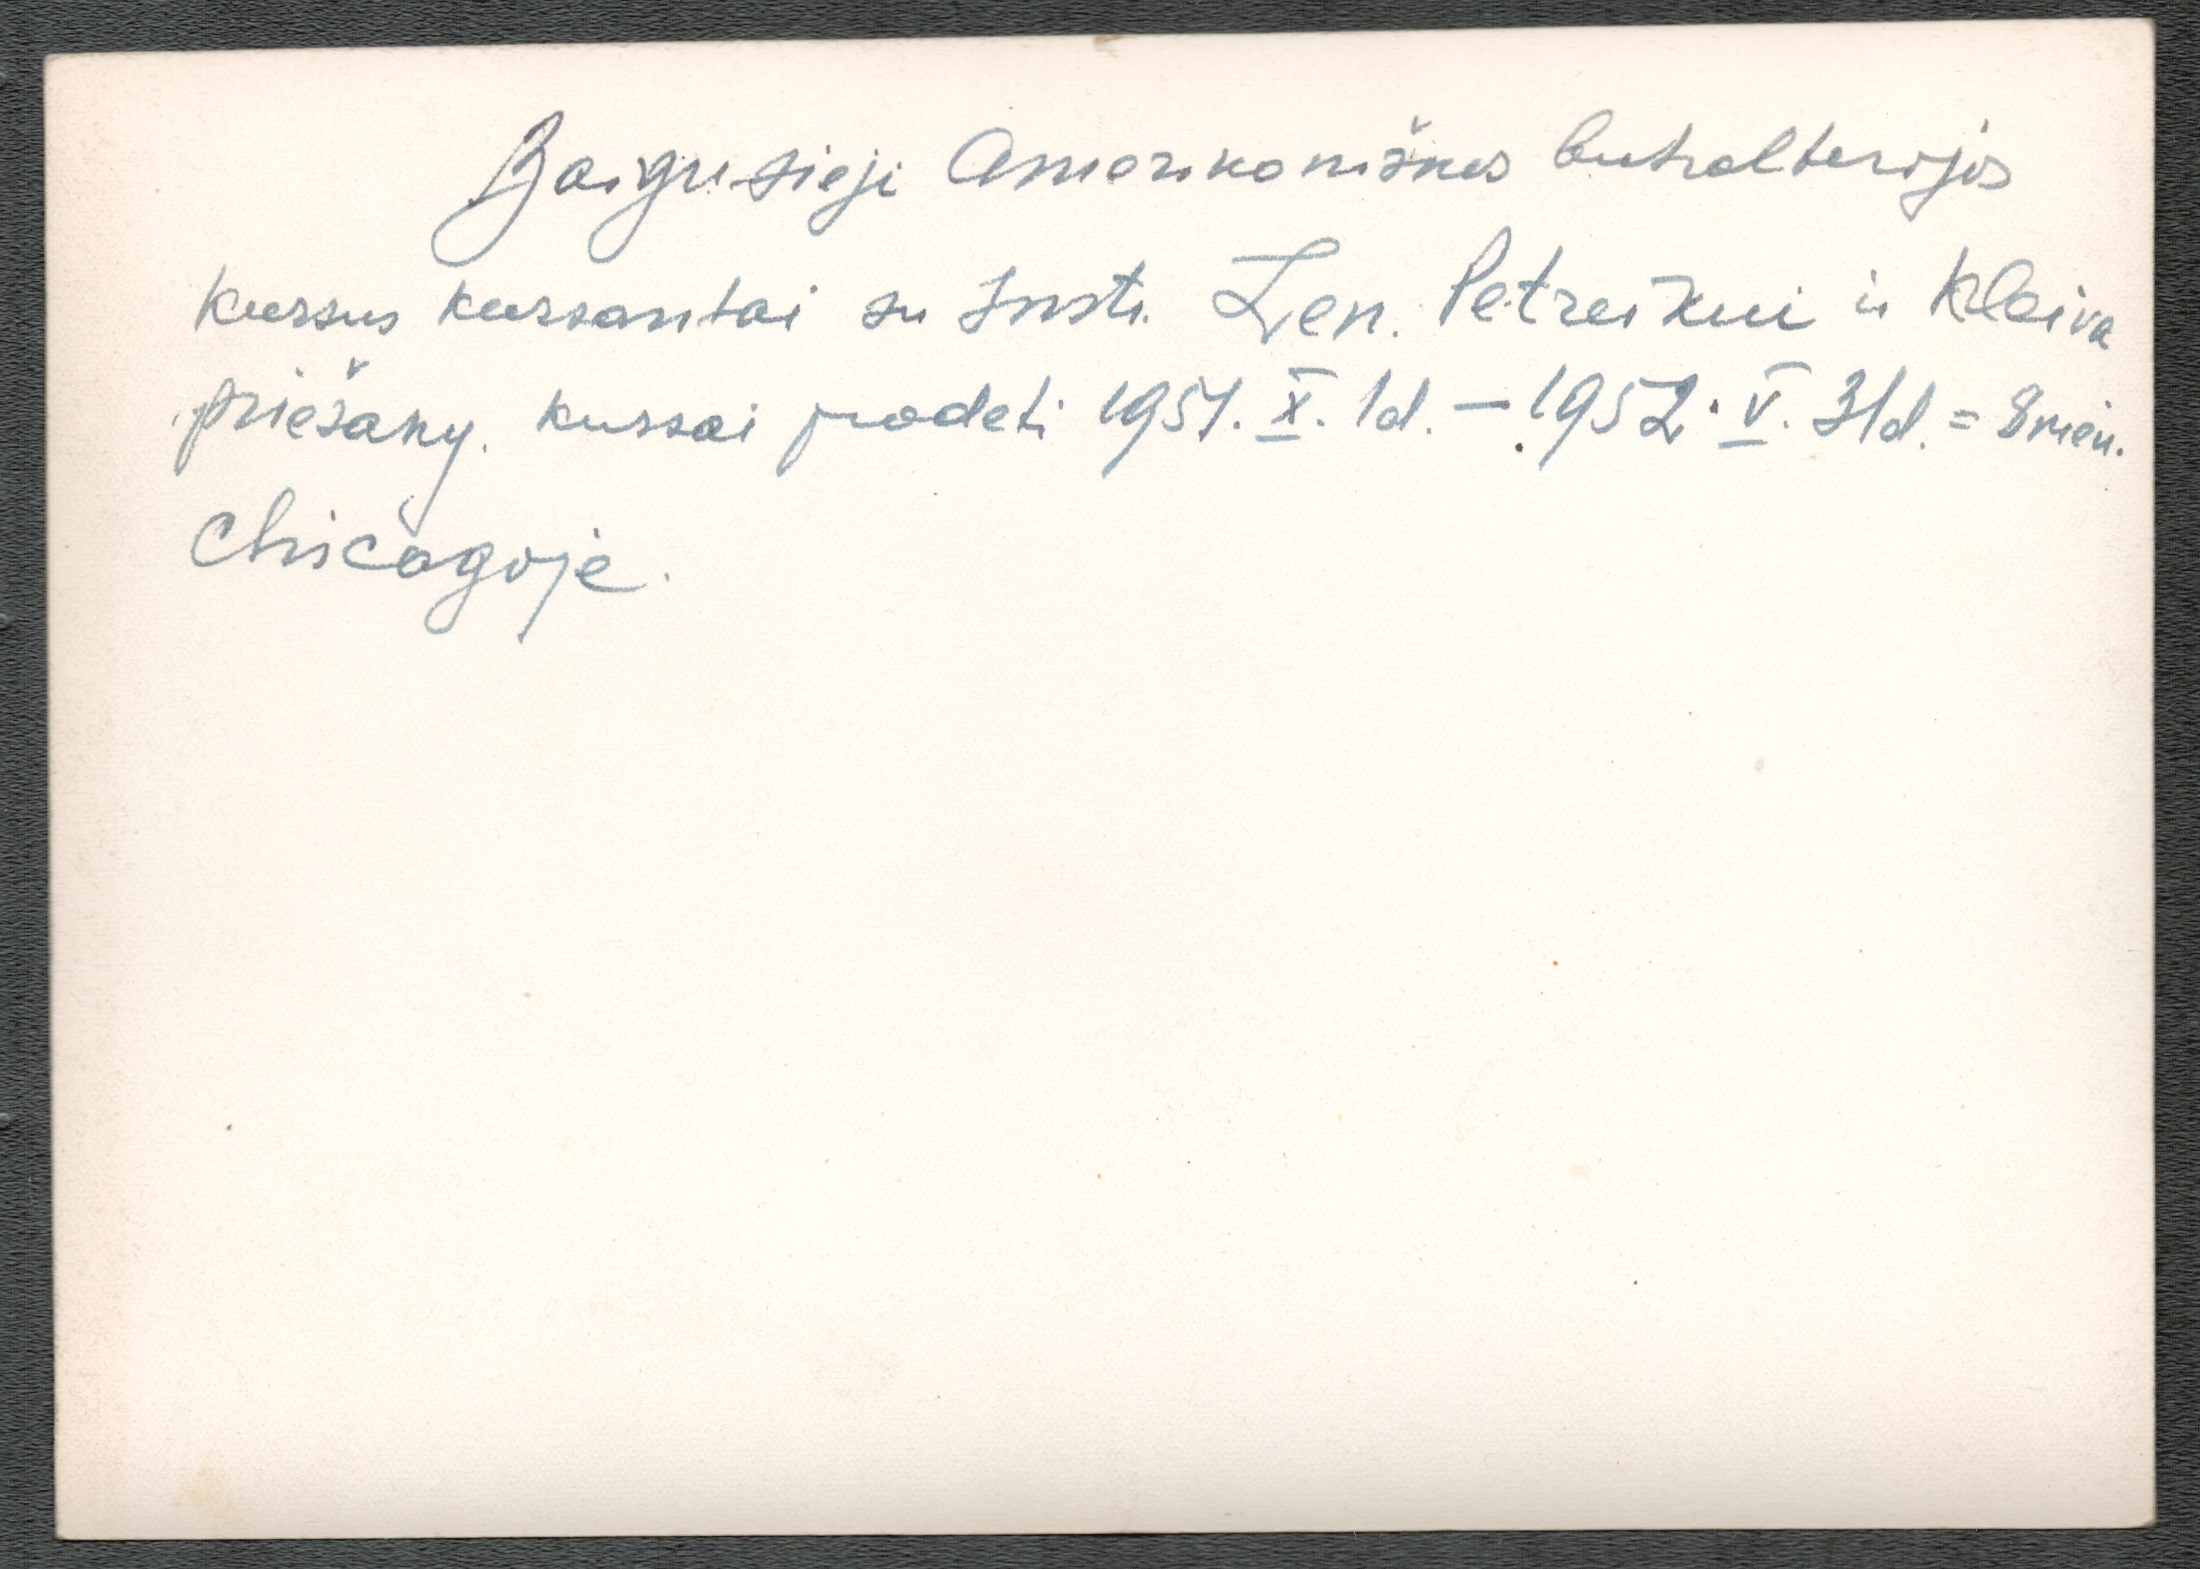 Baigusieji Amerikoniškos buhalterijos
kursus kursantai su Inst. Zen. Petreikui ir Kleiva
priešaky. kursai pradėti 1951. X. 1d. – 1952. V. 31d. = 8 mėn.
Chicagoje.